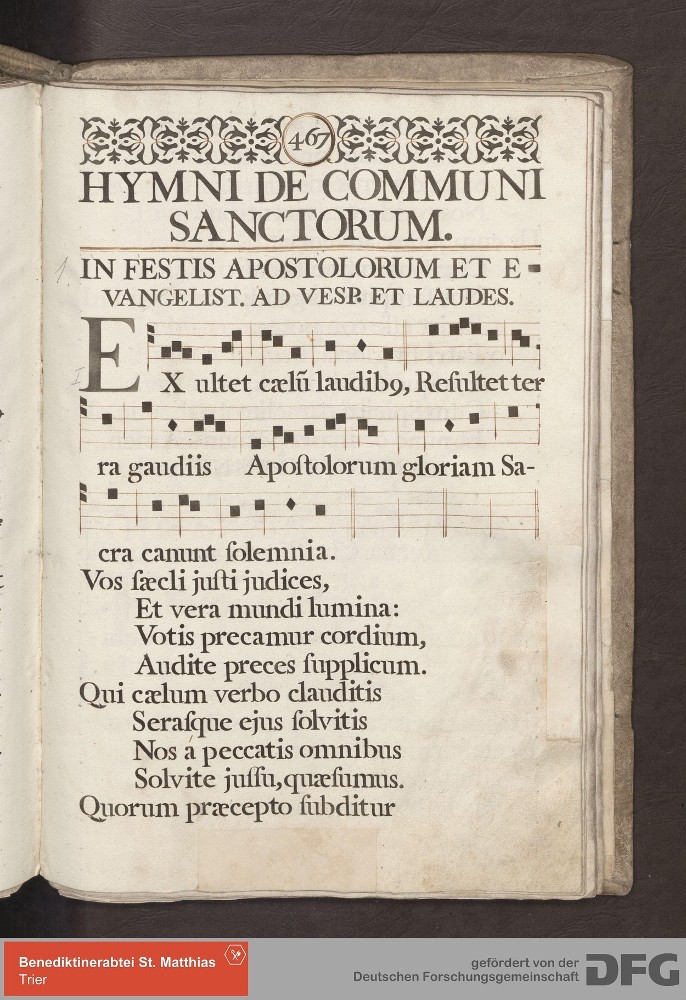 467
HYMNI DE COMMUNI
SANCTORUM.
IN FESTIS APOSTOLORUM ET E-
VANGELIST. AD VESP. ET LAUDES.
EX ultet cælū laudibꝯ, Reſultet ter
ra gaudiis Apoſtolorum gloriam Sa-
cra canunt ſolemnia.
Vos ſæcli juſti judices,
Et vera mundi lumina:
Votis precamur cordium,
Audite preces ſupplicum.
Qui cælum verbo clauditis
Seraſque ejus ſolvitis
Nos á peccatis omnibus
Solvite juſſu, quæſumus.
Quorum præcepto ſubditur
Benediktinerabtei St. Matthias
Trier
gefördert von der
Deutschen Forschungsgemeinschaft
DFG